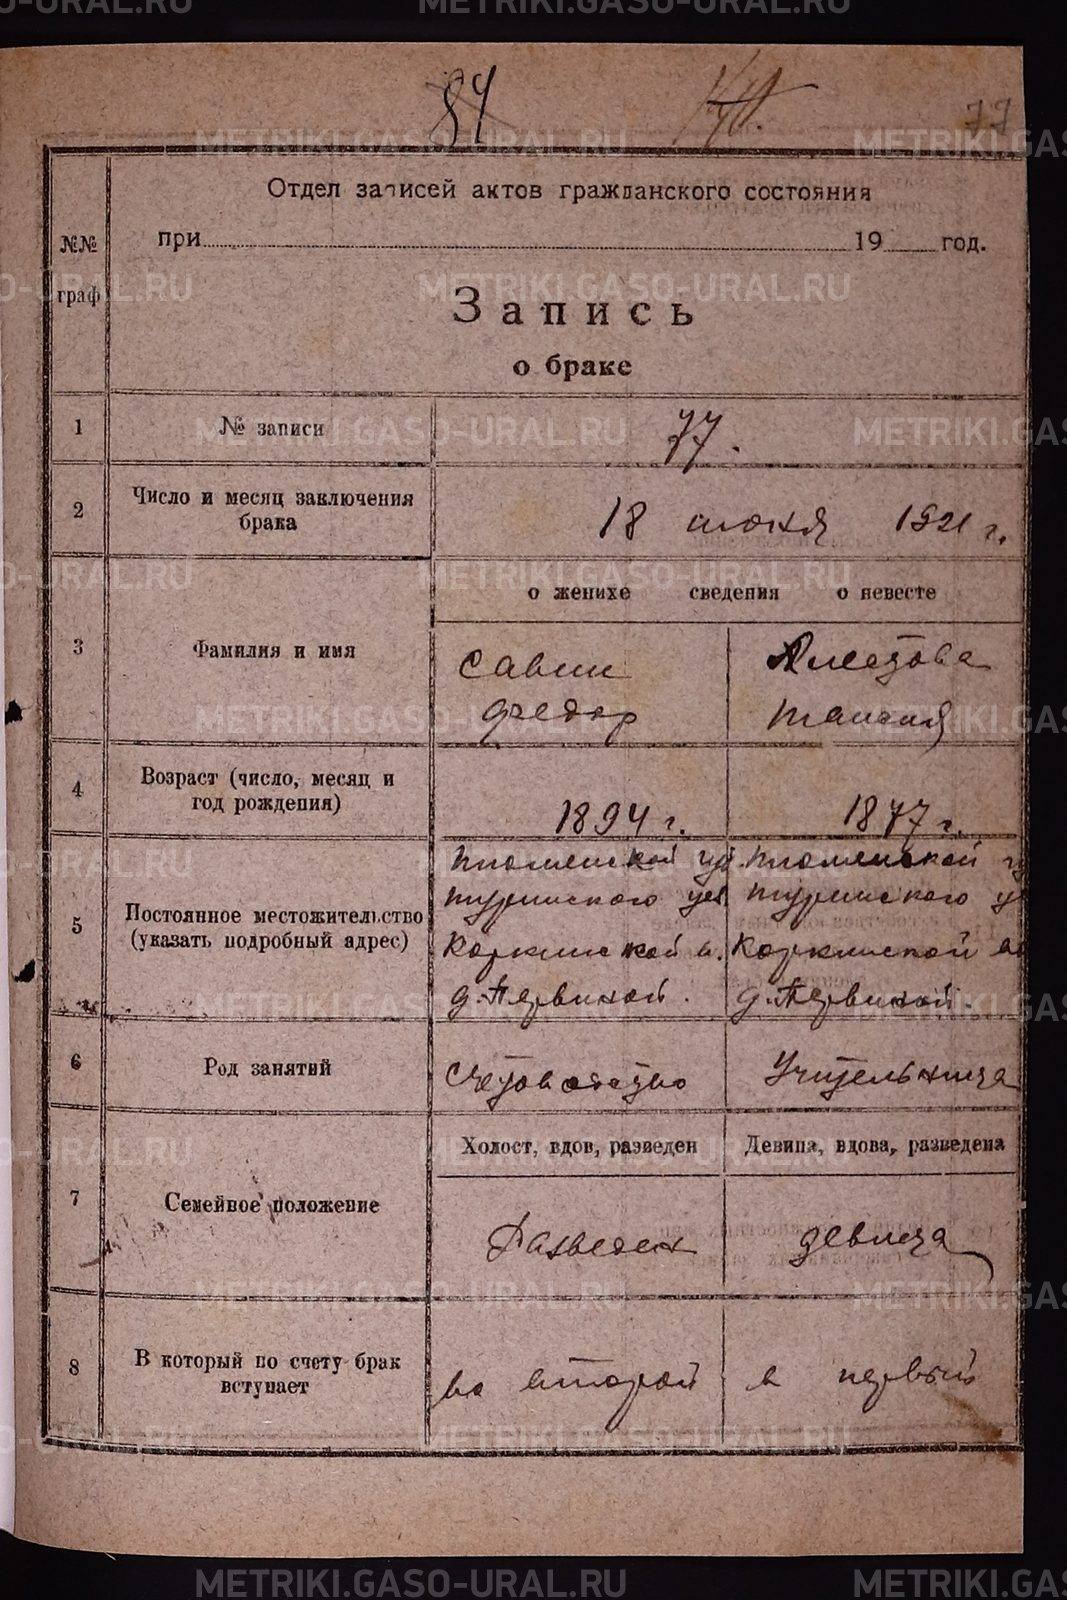 METRIKI.GASO-URAL.RU METRIKI.GASO-URAL.RU
84 77
Отдел записей актов гражданского состояния
при 19 год.
№№ граф
Запись
о браке
1 № записи 77.
2 Число и месяц заключения брака 18 июня 1921 г.
о женихе сведения о невесте
3 Фамилия и имя
Савин
Федор Таисия
4 Возраст (число, месяц и год рождения) 1894 г. 1877 г.
5 Постоянное местожительство (указать подробный адрес)
Тюменской губ Тюменской гу
Туринского уез Туринского у
Коркинской в. Коркинской во
д. Первиной. д. Первиной.
6 Род занятий Счетоводство Учительница
Холост, вдов, разведен Девица, вдова, разведена
7 Семейное положение Разведен девица
8 В который по счету брак вступает во второй в первый
METRIKI.GASO-URAL.RU